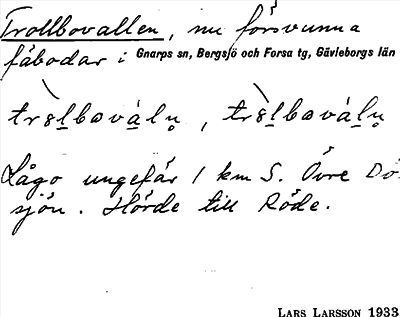 Trollbovallen, nu försvunna
fäbodar i Gnarps sn, Bergsjö och Forsa tg, Gävleborgs län
Lågo ungefär 1 km S. Övre Dö-
sjön. Hörde till Röde.
LARS LARSSON 1933